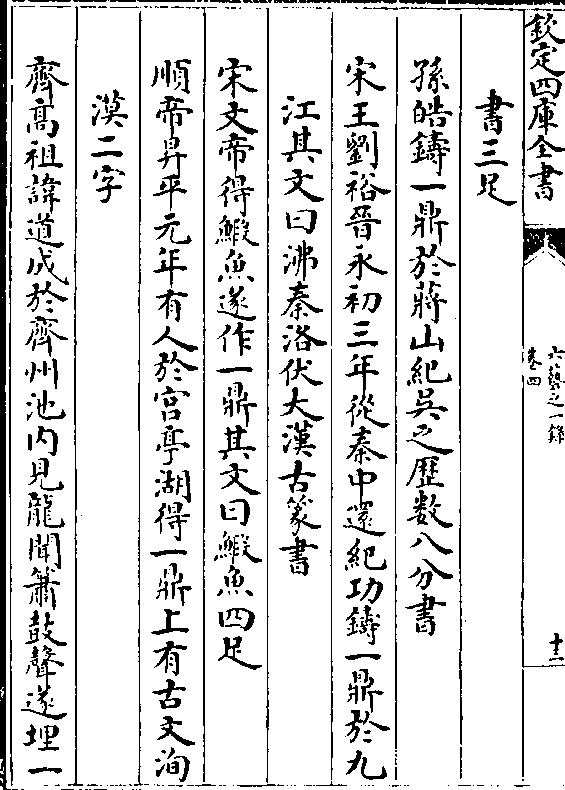 欽定四庫全書
六藝之一錄
卷四
十二
書三足
孫皓鑄一鼎於蔣山紀吳之歷数八分書
宋王劉裕晉永初三年從秦中還紀功鑄一鼎於九
江其文曰沸秦洛伏大漢古篆書
宋文帝得鰕魚遂作一鼎其文曰鰕魚四足
順帝昇平元年有人於宮亭湖得一鼎上有古文洵
漠二字
齊高祖諱道成於齊州池内見龍聞簫鼓聲遂埋一